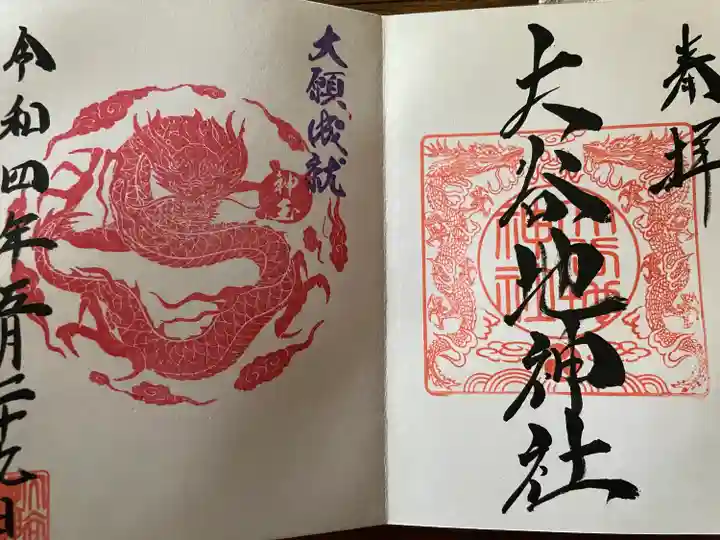 奉拝
大谷地神社
大願成就
令和四年五月二十九日